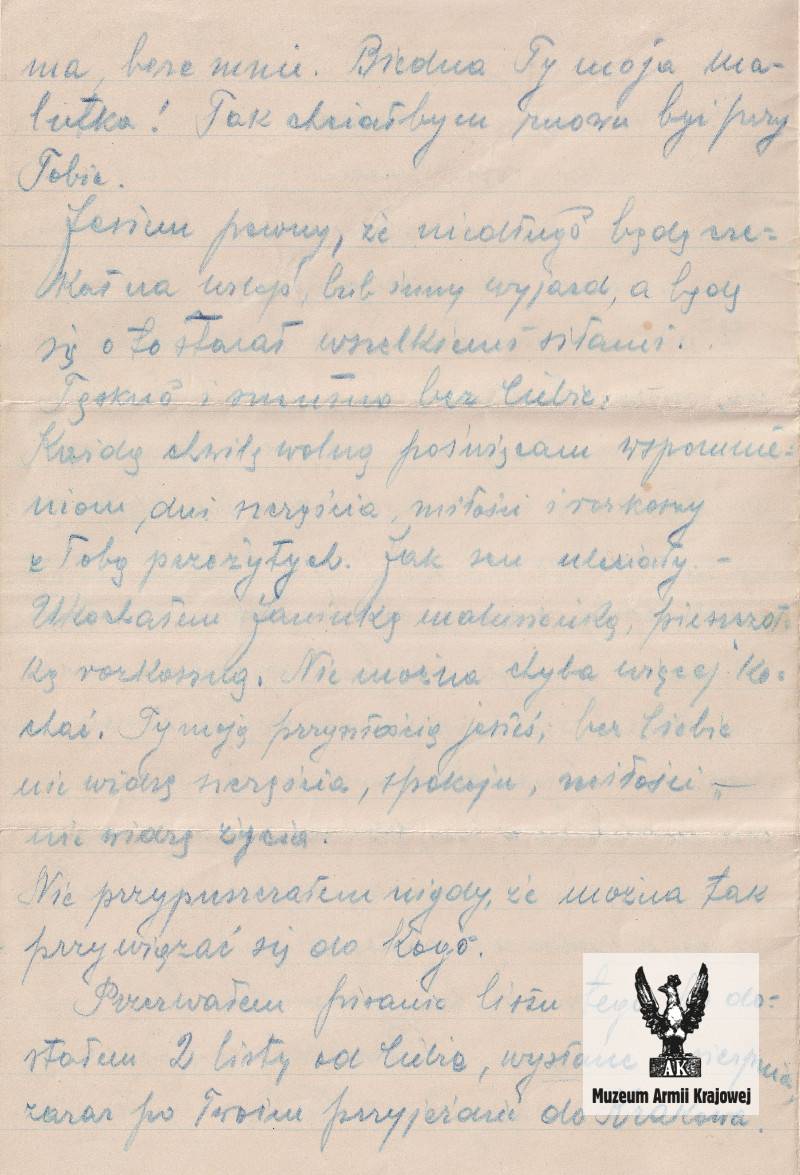 ma, beze mnie. Biedna Ty moja ma-
lutka! Tak chciałbym znowu być przy
Tobie.
Jestem pewny, że niedługo będę cze=
kał na urlop, lub inny wyjazd, a będę
się o to starał wszelkiemi siłami.
Tęskno i smutno bez Ciebie.
Każdą chwilę wolną poświęcam wspomnie=
niom, dni szczęścia, miłości i rozkoszy
z Tobą przeżytych. Jak sen uleciały. –
Ukochałem Janinkę malusieńką, pieszczot-
kę rozkoszną. Nie można chyba więcej ko-
chać. Ty moją przyszłością jesteś, bez Ciebie
nie widzę szczęścia, spokoju, miłości –
nie widzę życia.
Nie przypuszczałem nigdy, że można tak
przywiązać się do kogoś.
Przerwałem pisanie listu do=
stałem 2 listy od Ciebie, wysłane sierpnia,
zaraz po Twoim przyjeździe do Krakowa.
AK
Muzeum Armii Krajowej